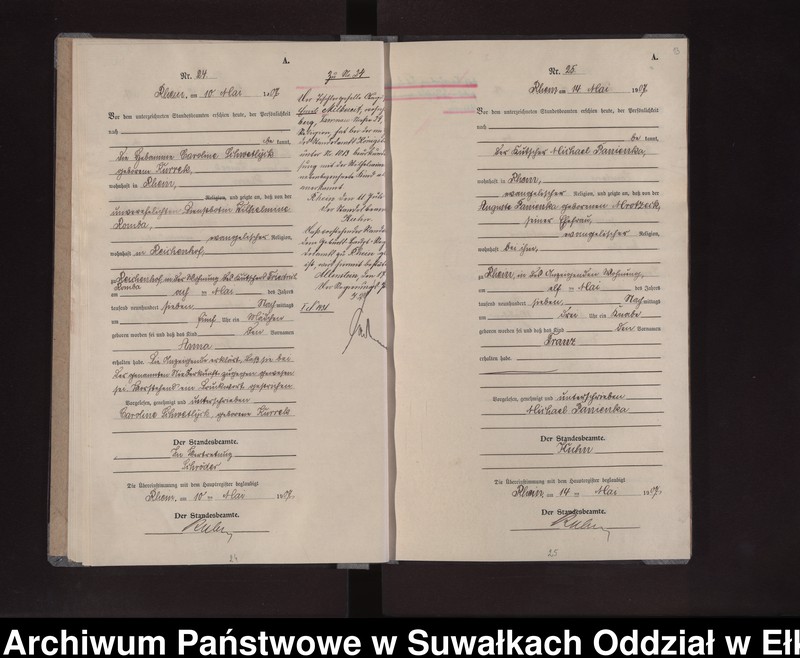 A.
Nr. 24
Rhein, am 10 ten Mai 1907
Vor dem unterzeichneten Standesbeamten erschien heute, der Persönlichkeit
nach
be kannt,
die Hebamme Caroline Schwetlijck
geborene Kurrek,
wohnhaft in Rhein,
Religion, und zeigte an, daß von der
unverehelichten Dienstbotin Wilhelmine
Romba,
evangelischer Religion,
wohnhaft in Reichenhof,
zu Reichenhof, in der Wohnung des Kutschers Friedrich
Romba
am acht ten Mai des Jahres
tausend neunhundert sieben Nachmittags
um fünf Uhr ein Mädchen
geboren worden sei und daß das Kind den Vornamen
Anna
erhalten habe. Die Anzeigende erklärt, daß sie bei
der genannten Niederkunft zugegen gewesen
sei. Vorstehend ein Druckwort gestrichen
Vorgelesen, genehmigt und unterschrieben
Caroline Schwetlijck, geborene Kurrek
Der Standesbeamte.
In Vertretung
Schröder
Die Übereinstimmung mit dem Hauptregister beglaubigt
Rhein, am 10 ten Mai 1907.
Der Standesbeamte.
Kuhn
24
Zu Nr. 24
Der Tischlergeselle
Emil
Religion, hat vor
unter Nr. 1013
anerkannt.
Rhein den 11 Juli
Der Standesbeamte
Kuhn.
Allenstein, den 19
Der Regierungs
A.
Nr. 25
Rhein am 14 ten Mai 1907.
Vor dem unterzeichneten Standesbeamten erschien heute, der Persönlichkeit
nach
be kannt,
der Kutscher Michael Panienka,
wohnhaft in Rhein,
evangelischer Religion, und zeigte an, daß von der
Auguste Panienka geborenen Mrotzeck,
seiner Ehefrau,
evangelischer Religion,
wohnhaft bei ihm,
zu Rhein, in des Anzeigenden Wohnung,
am elf ten Mai des Jahres
tausend neunhundert sieben, Nachmittags
um drei Uhr ein Knabe
geboren worden sei und daß das Kind den Vornamen
Franz
erhalten habe.
Vorgelesen, genehmigt und unterschrieben
Michael Panienka
Der Standesbeamte
Kuhn
Die Übereinstimmung mit dem Hauptregister beglaubigt
Rhein, am 14 ten Mai 1907.
Der Standesbeamte.
Kuhn
25
Archiwum Państwowe w Suwałkach Oddział w Ełk